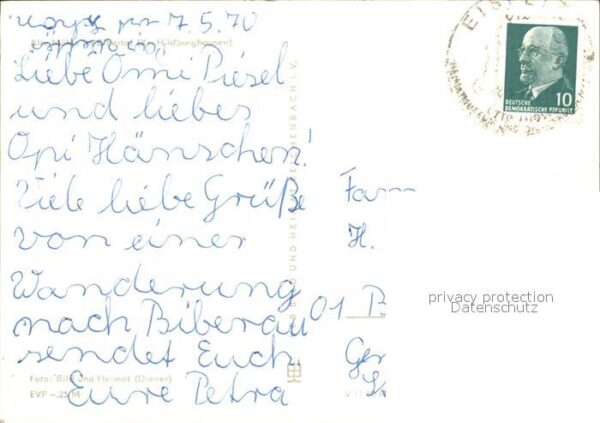 7.5.70
Liebe Omi Piesel
und liebes
Opi Hänschen!
Viele liebe Grüße
von einer
Wanderung
nach Biberau
sendet Euch
Eure Petra
Foto: Bild und Heimat (Diener)
EVP -,25 M
BILD UND HEIMAT REICHENBACH i. V.
Fam
H.
01 B
Ger
10
DEUTSCHE
DEMOKRATISCHE REPUBLIK
privacy protection
Datenschutz